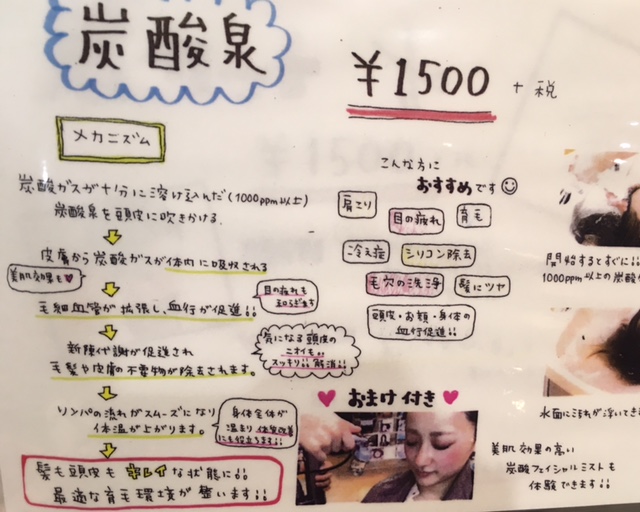 炭酸泉
¥1500 +税
メカニズム
炭酸ガスが十分に溶け込んだ(1000ppm以上)
炭酸泉を頭皮に吹きかける.
皮膚から炭酸ガスが体内に吸収される
美肌効果も♥
毛細血管が拡張し、血行が促進!!
目の疲れも
和らぎます
新陳代謝が促進され
毛髪や皮膚の不要物が除去されます。
気になる頭皮の
ニオイも
スッキリ!!解消!!
リンパの流れがスムーズになり
体温が上がります。
身体全体が
温まり体質改善
にも役立ちます!!
髪も頭皮もキレイな状態に!!
最適な育毛環境が整います!!
こんな方に
おすすめです☺
肩こり
目の疲れ
育毛
冷え症
シリコン除去
毛穴の洗浄
髪にツヤ
頭皮・お顔・身体の
血行促進!!
♥おまけ付き♥
開始するとすぐに!!
1000ppm以上の炭酸
水面に汚れが浮いてき
美肌効果の高い
炭酸フェイシャルミストも
体験できます!!